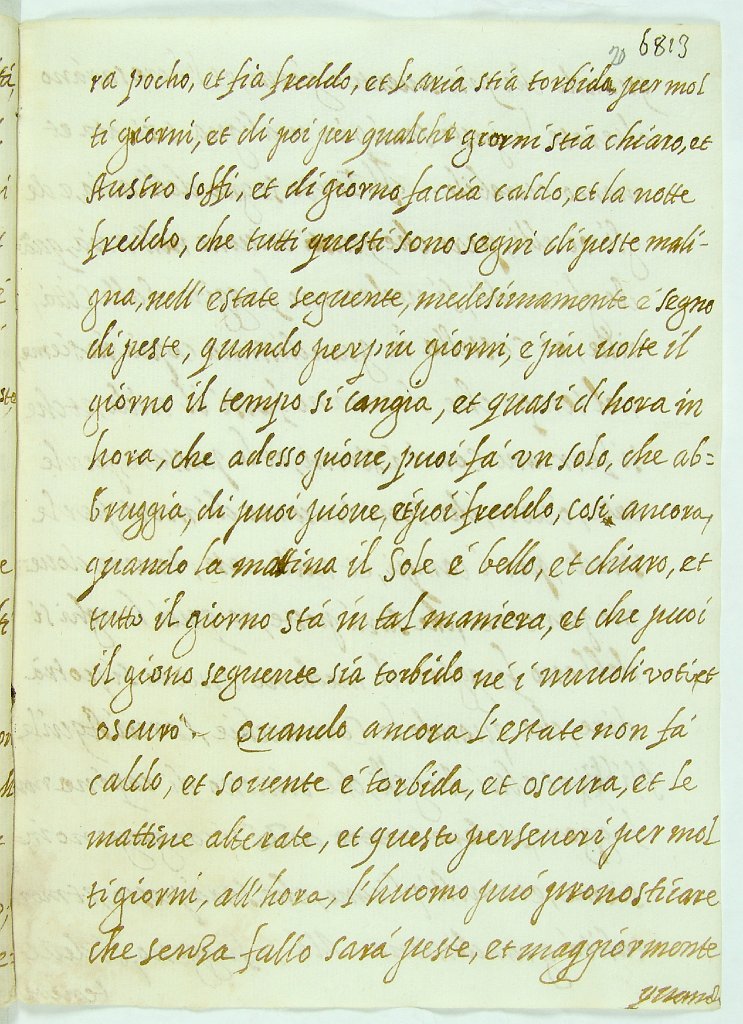 20 6813
ra pocho, et sia freddo, et l'aria stia torbida, per mol
ti giorni, et di poi per qualche giorni stia chiaro, et
Austro soffi, et di giorno faccia caldo, et la notte
freddo, che tutti questi sono segni di peste mali-
gna, nell'estate seguente, medesimamente é segno
di peste, quando per piu giorni, é piu uolte il
giorno il tempo si cangia, et quasi d'hora in
hora, che adesso pioue, puoi fá vn solo, che ab=
bruggia, di puoi pioue, é poi freddo, cosi ancora,
quando la mattina il Sole é bello, et chiaro, et
tutto il giorno stá in tal maniera, et che puoi
il giono seguente sia torbido né i nuuoli voti, et
oscuro. Quando ancora l'estate non fá
caldo, et souente é torbida, et oscura, et le
mattine alterate, et questo perseueri per mol
ti giorni, all'hora, l'huomo puó pronosticare
che senza fallo sará peste, et maggiormente
quand